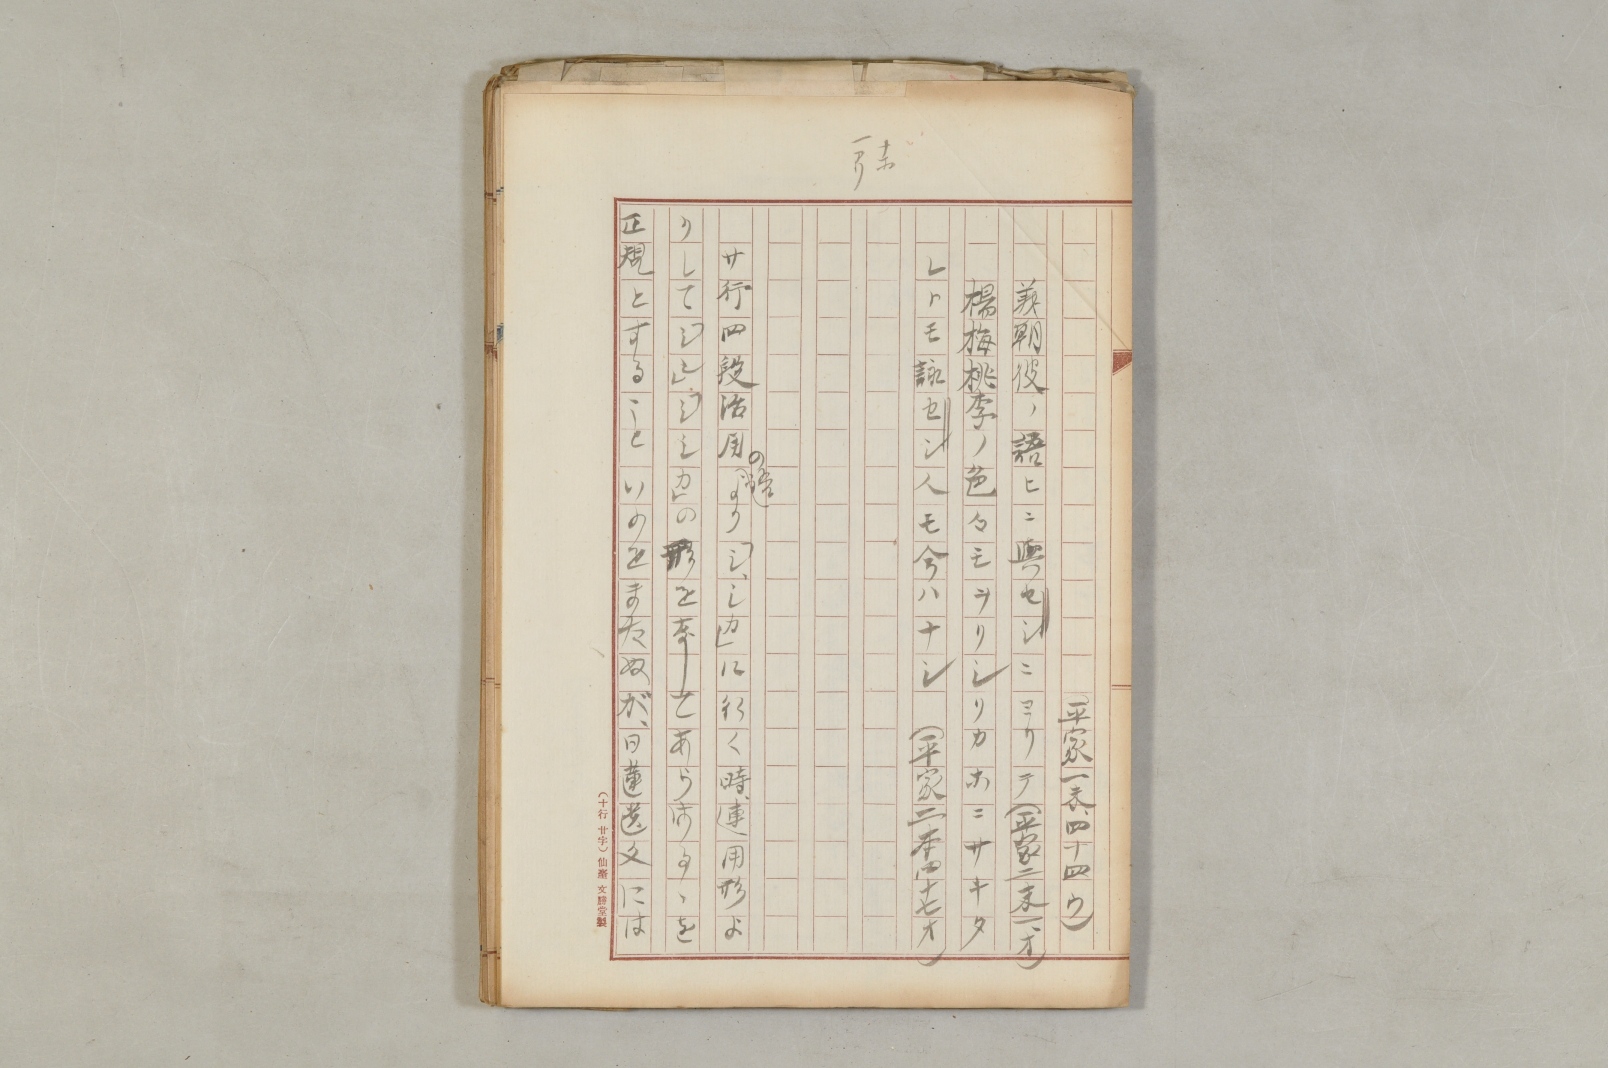 (平家一末、四十四ウ)
義朝役ノ語ヒニ與セシニヨリテ(平家二末一オ)
楊梅桃李ノ色々モヲリシリカホニサキタ
レトモ詠セシ人モ今ハナシ (平家二本四十七オ)
サ行四段活用の語より「シ、シカ」に行く時、連用形よ
りして「シシ」「シシカ」の形を奉じてあらはるゝを
正規とすること いのをまたぬが、日蓮遺文には
(十行 廿字) 仙臺 文